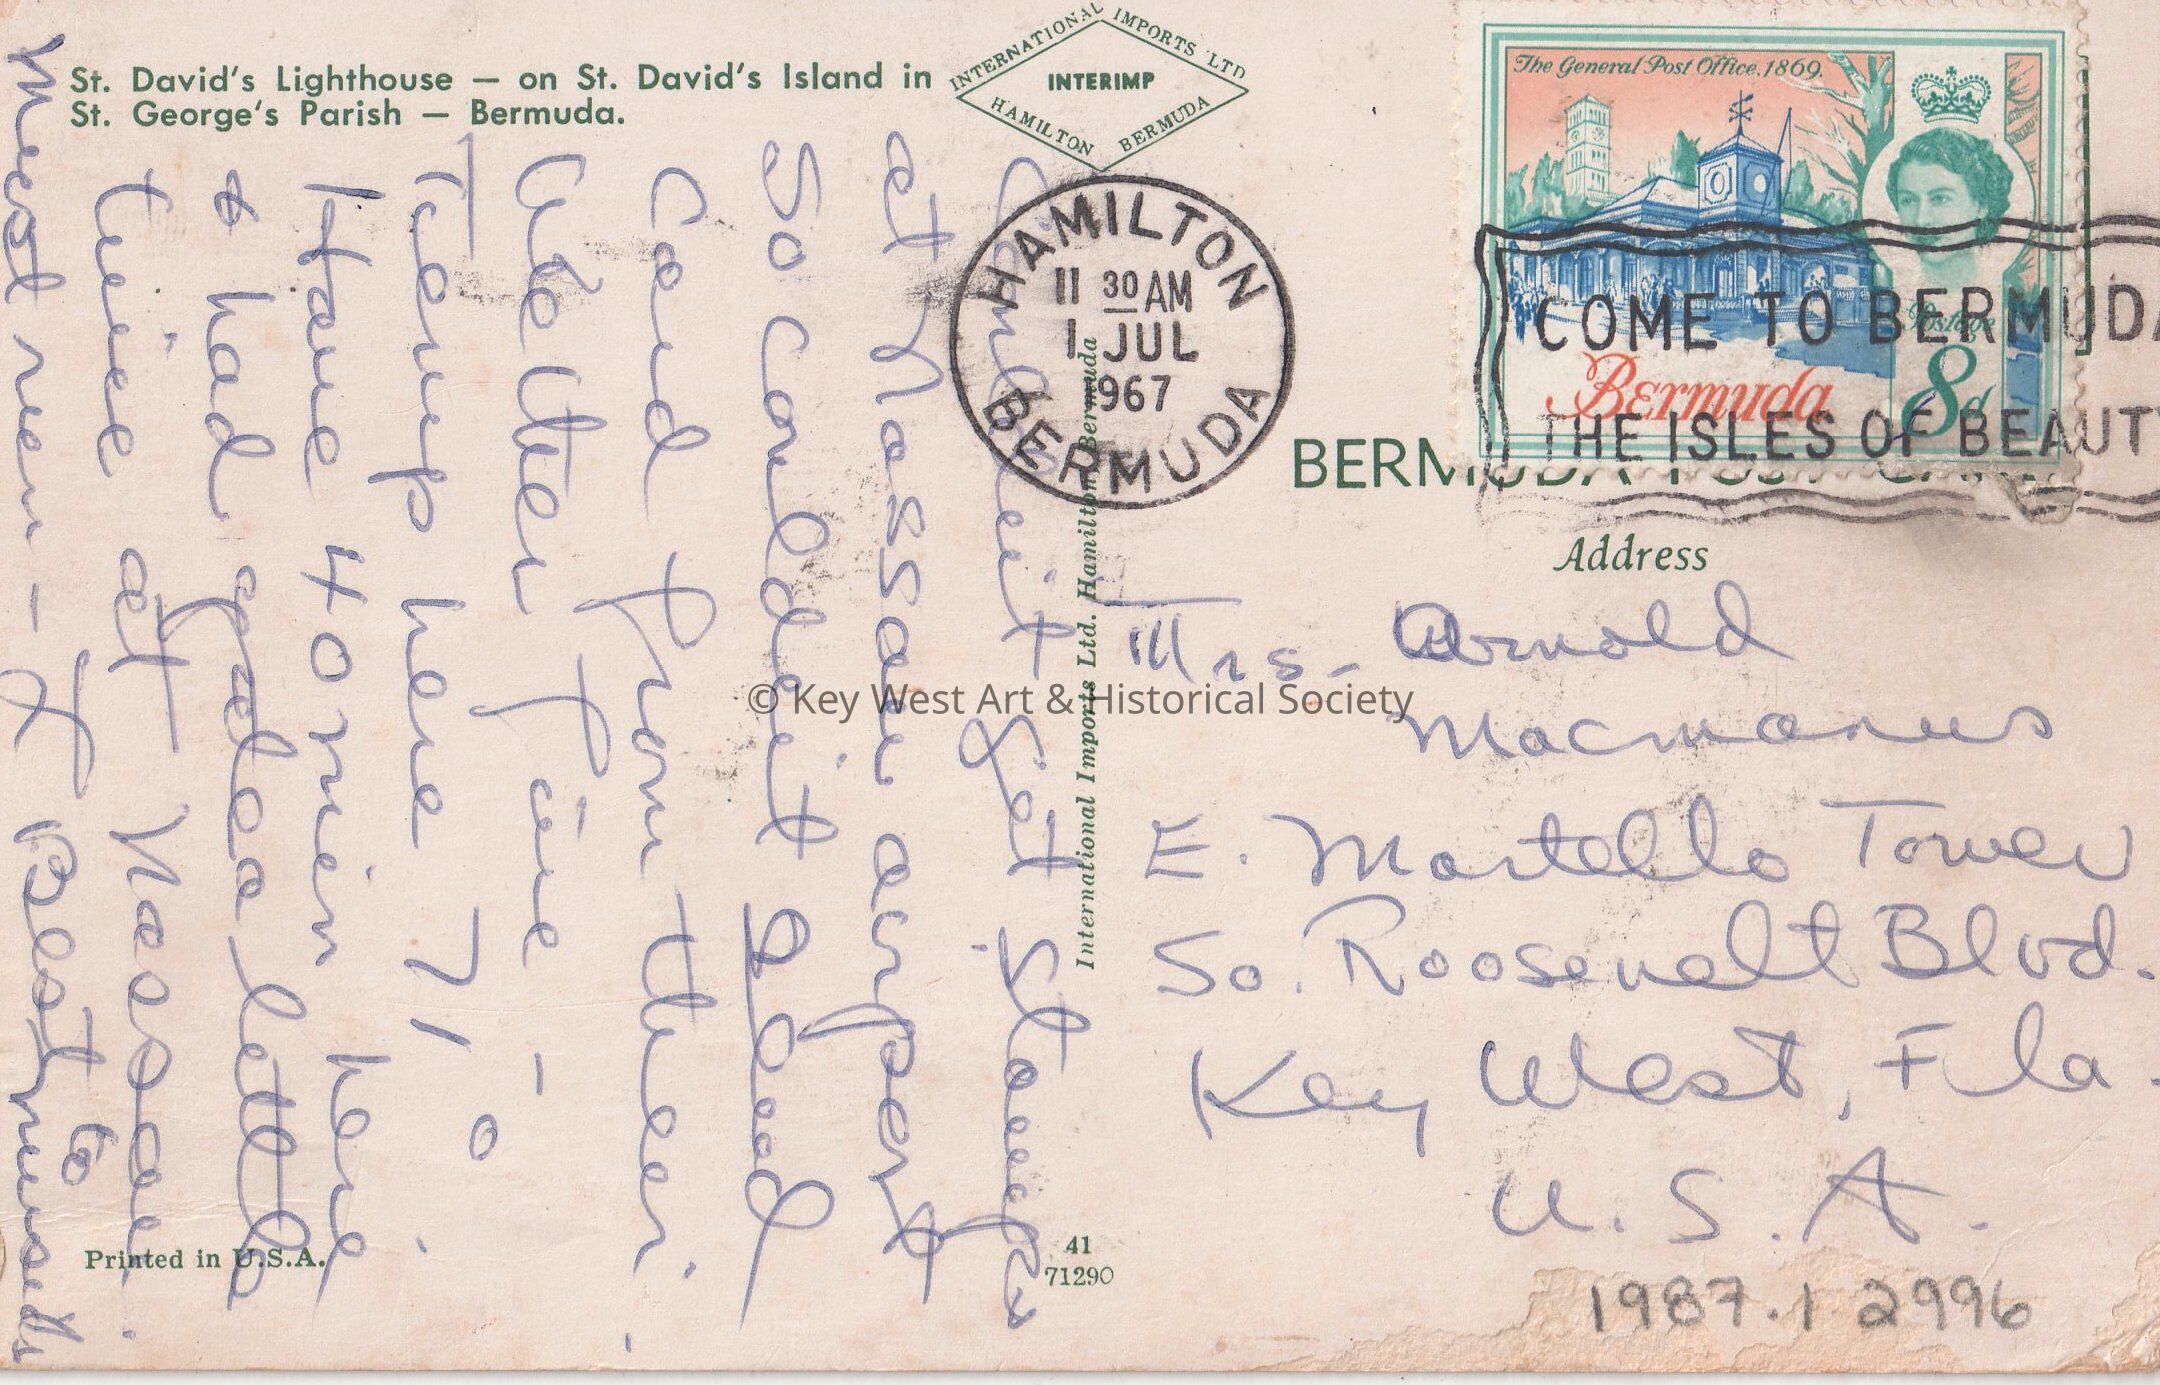 St. David's Lighthouse — on St. David's Island in
St. George's Parish — Bermuda.
INTERNATIONAL IMPORTS LTD
INTERIMP
HAMILTON BERMUDA
The General Post Office. 1869.
Postage
Bermuda
8d
HAMILTON
11 30 AM
1 JUL
1967
BERMUDA
COME TO BERMUDA
THE ISLES OF BEAUTY
BERMUDA POST CARD
Address
Couldn't get stamps
at Nassau airport
so couldn't send
card from there.
Weather fine —
Temp here 71 - 0
Have 40 min here.
& had a little
time at Nassau.
to
must run — Best
International Imports Ltd. Hamilton Bermuda
Mrs. Arnold
Macmanus
E. Martello Tower
So. Roosevelt Blvd.
Key West, Fla.
U.S.A.
Printed in U.S.A.
41
71290
1987.1 2996
© Key West Art & Historical Society